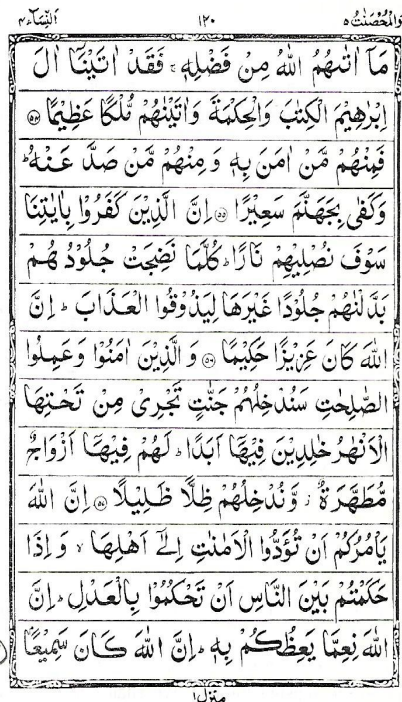 وَالْمُحْصَنٰتُ ٥ ١٢٠ اَلنِّسَآء ٤
مَاۤ اٰتٰىهُمُ اللّٰهُ مِنْ فَضْلِهٖ ۚ فَقَدْ اٰتَيْنَاۤ اٰلَ
اِبْرٰهِيْمَ الْكِتٰبَ وَالْحِكْمَةَ وَاٰتَيْنٰهُمْ مُّلْكًا عَظِيْمًا ۝٥٤
فَمِنْهُمْ مَّنْ اٰمَنَ بِهٖ وَمِنْهُمْ مَّنْ صَدَّ عَنْهُ ؕ
وَكَفٰى بِجَهَنَّمَ سَعِيْرًا ۝٥٥ اِنَّ الَّذِيْنَ كَفَرُوْا بِاٰيٰتِنَا
سَوْفَ نُصْلِيْهِمْ نَارًا ؕ كُلَّمَا نَضِجَتْ جُلُوْدُهُمْ
بَدَّلْنٰهُمْ جُلُوْدًا غَيْرَهَا لِيَذُوْقُوا الْعَذَابَ ؕ اِنَّ
اللّٰهَ كَانَ عَزِيْزًا حَكِيْمًا ۝٥٦ وَالَّذِيْنَ اٰمَنُوْا وَعَمِلُوا
الصّٰلِحٰتِ سَنُدْخِلُهُمْ جَنّٰتٍ تَجْرِيْ مِنْ تَحْتِهَا
الْاَنْهٰرُ خٰلِدِيْنَ فِيْهَاۤ اَبَدًا ؕ لَهُمْ فِيْهَاۤ اَزْوَاجٌ
مُّطَهَّرَةٌ ؗ وَّنُدْخِلُهُمْ ظِلًّا ظَلِيْلًا ۝٥٧ اِنَّ اللّٰهَ
يَاْمُرُكُمْ اَنْ تُؤَدُّوا الْاَمٰنٰتِ اِلٰۤى اَهْلِهَا ۙ وَاِذَا
حَكَمْتُمْ بَيْنَ النَّاسِ اَنْ تَحْكُمُوْا بِالْعَدْلِ ؕ اِنَّ
اللّٰهَ نِعِمَّا يَعِظُكُمْ بِهٖ ؕ اِنَّ اللّٰهَ كَانَ سَمِيْعًۢا
منزل ١